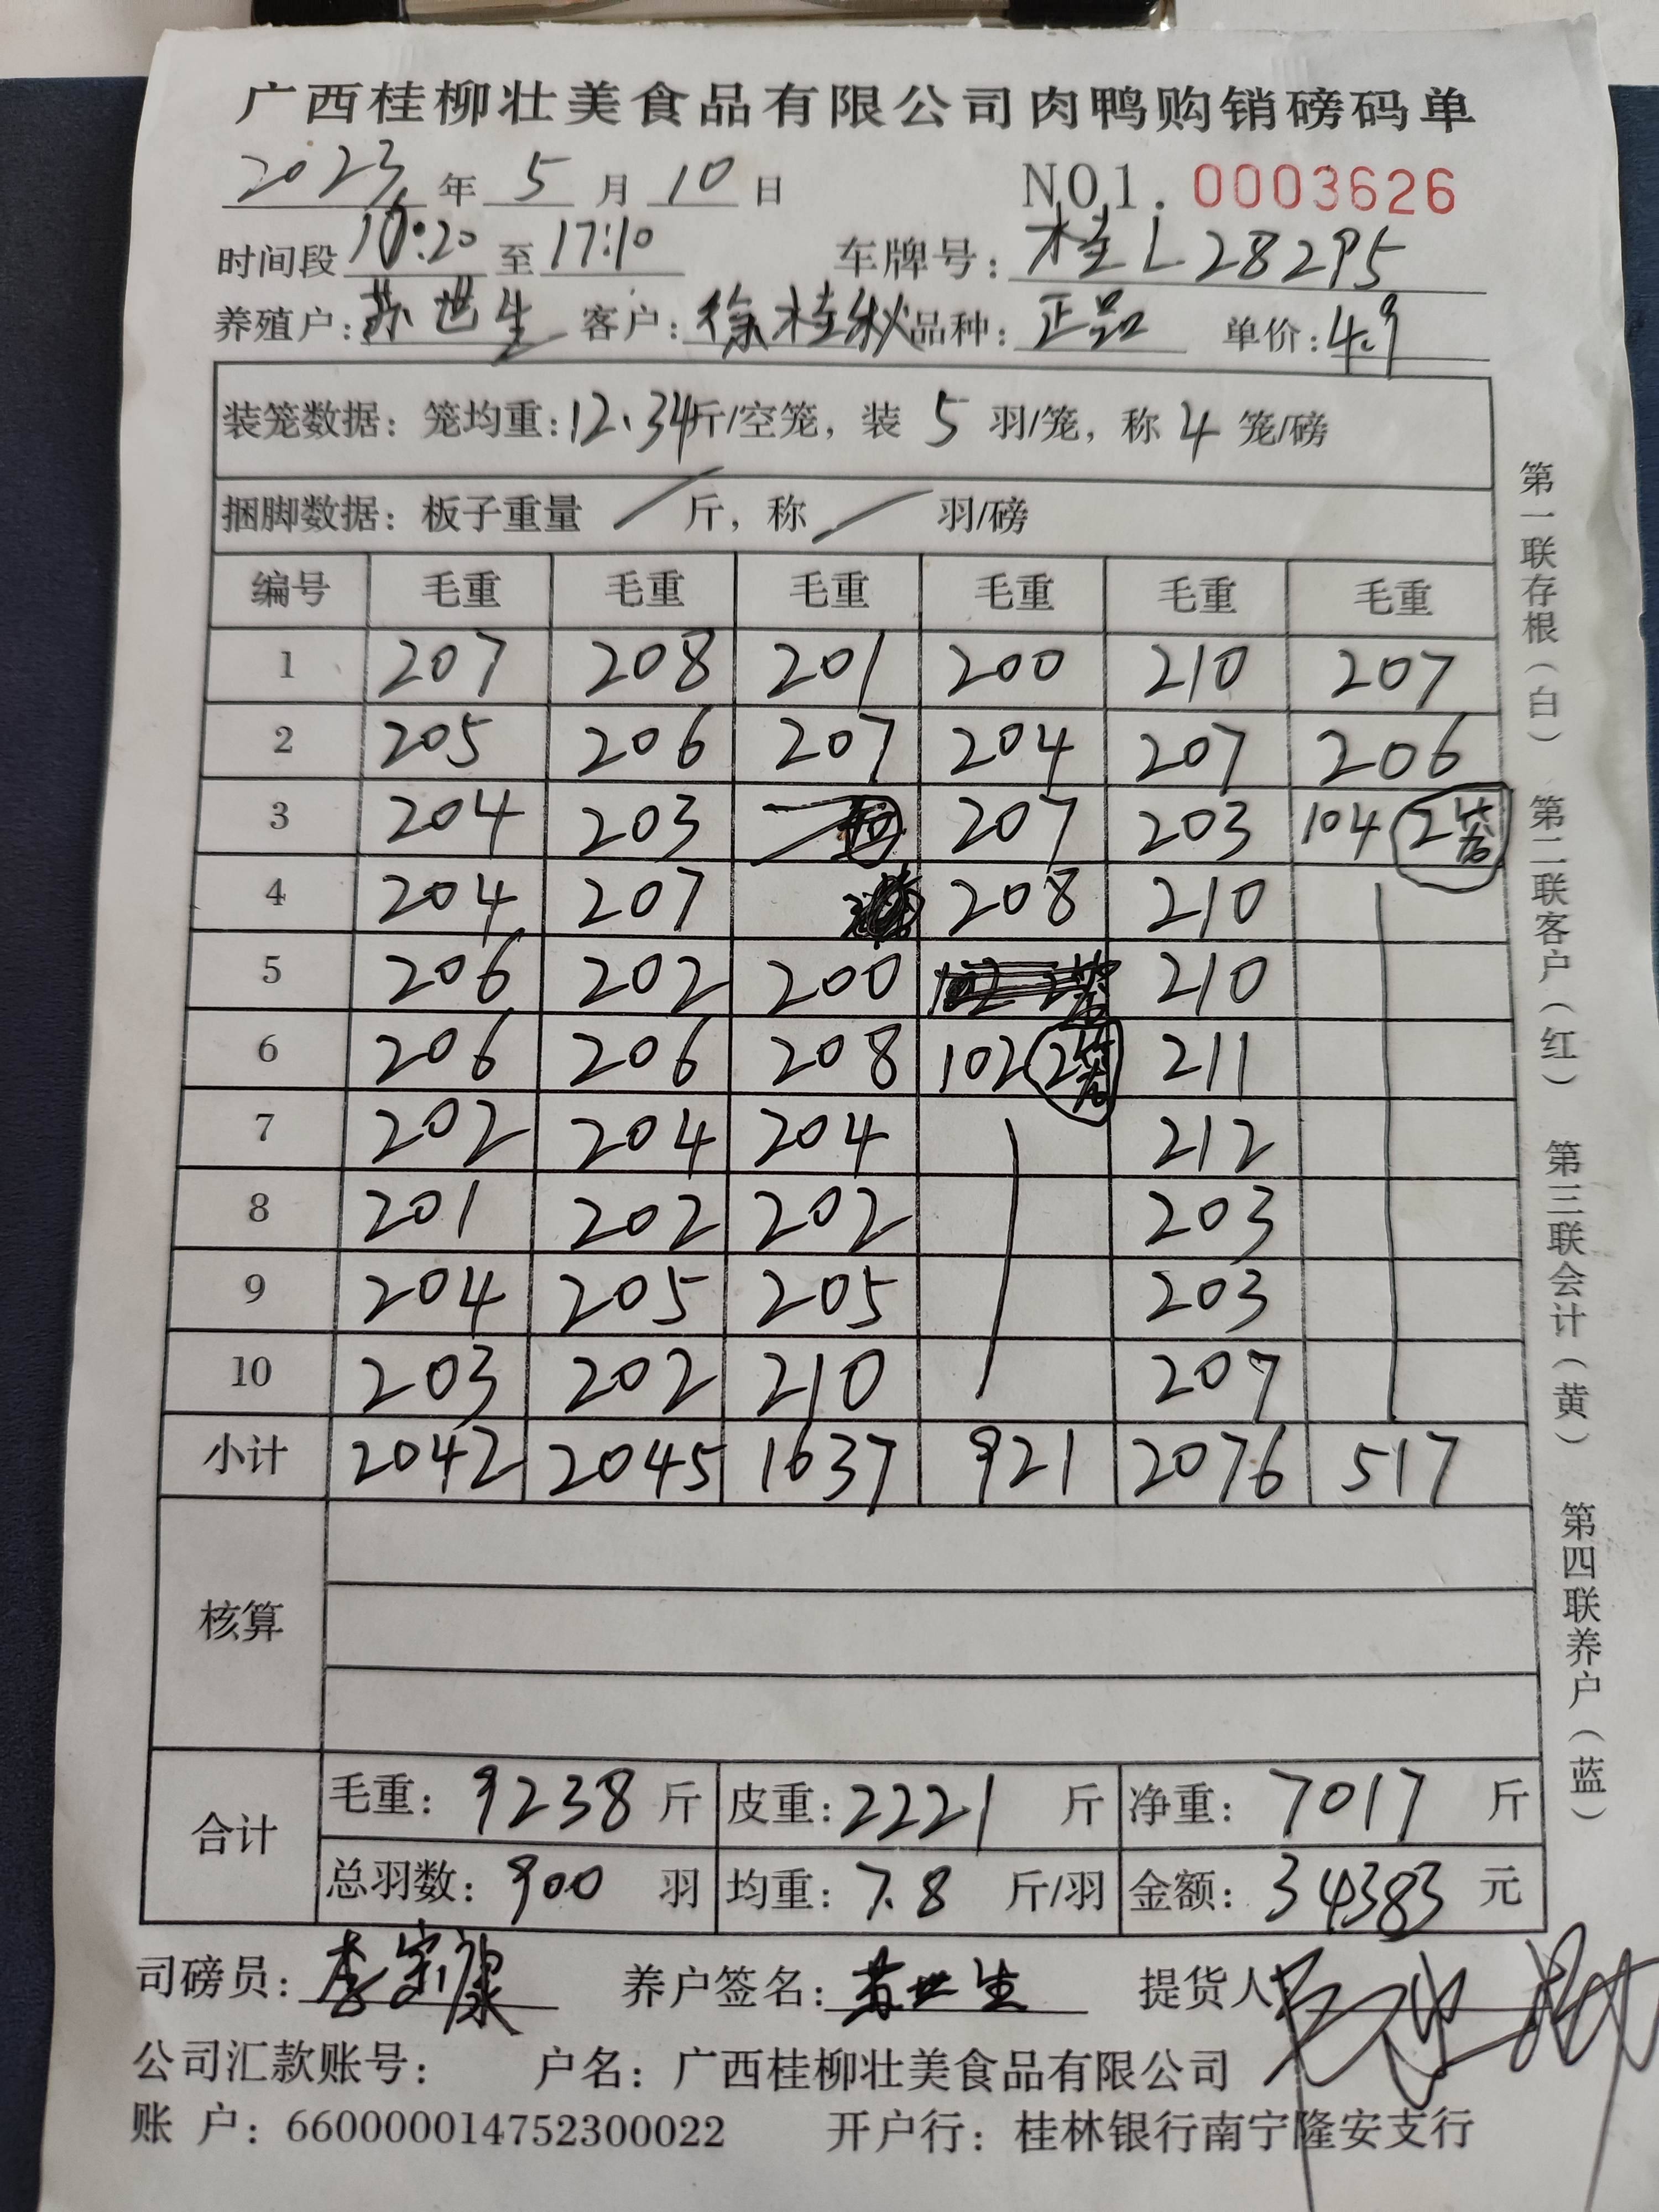 广西桂柳壮美食品有限公司肉鸭购销磅码单
2023年 5 月 10 日 NO1. 0003626
时间段 16:20 至 17:10 车牌号: 桂L28295
养殖户: 苏世生 客户: 徐桂秋 品种: 正品 单价: 4.9
装笼数据: 笼均重: 12.34斤/空笼, 装 5 羽/笼, 称 4 笼/磅
捆脚数据: 板子重量 / 斤, 称 / 羽/磅
编号 毛重 毛重 毛重 毛重 毛重 毛重
1 207 208 201 200 210 207
2 205 206 207 204 207 206
3 204 203 207 203 104 2笼
4 204 207 208 210
5 206 202 200 210
6 206 206 208 102 2笼 211
7 202 204 204 212
8 201 202 202 203
9 204 205 205 203
10 203 202 210 207
小计 2042 2045 1637 921 2076 517
核算
合计
毛重: 9238 斤 皮重: 2221 斤 净重: 7017 斤
总羽数: 900 羽 均重: 7.8 斤/羽 金额: 34383 元
司磅员: 李宗 养户签名: 苏世生 提货人
公司汇款账号: 户名: 广西桂柳壮美食品有限公司
账 户: 660000014752300022 开户行: 桂林银行南宁隆安支行
第一联存根(白) 第二联客户(红) 第三联会计(黄) 第四联养户(蓝)